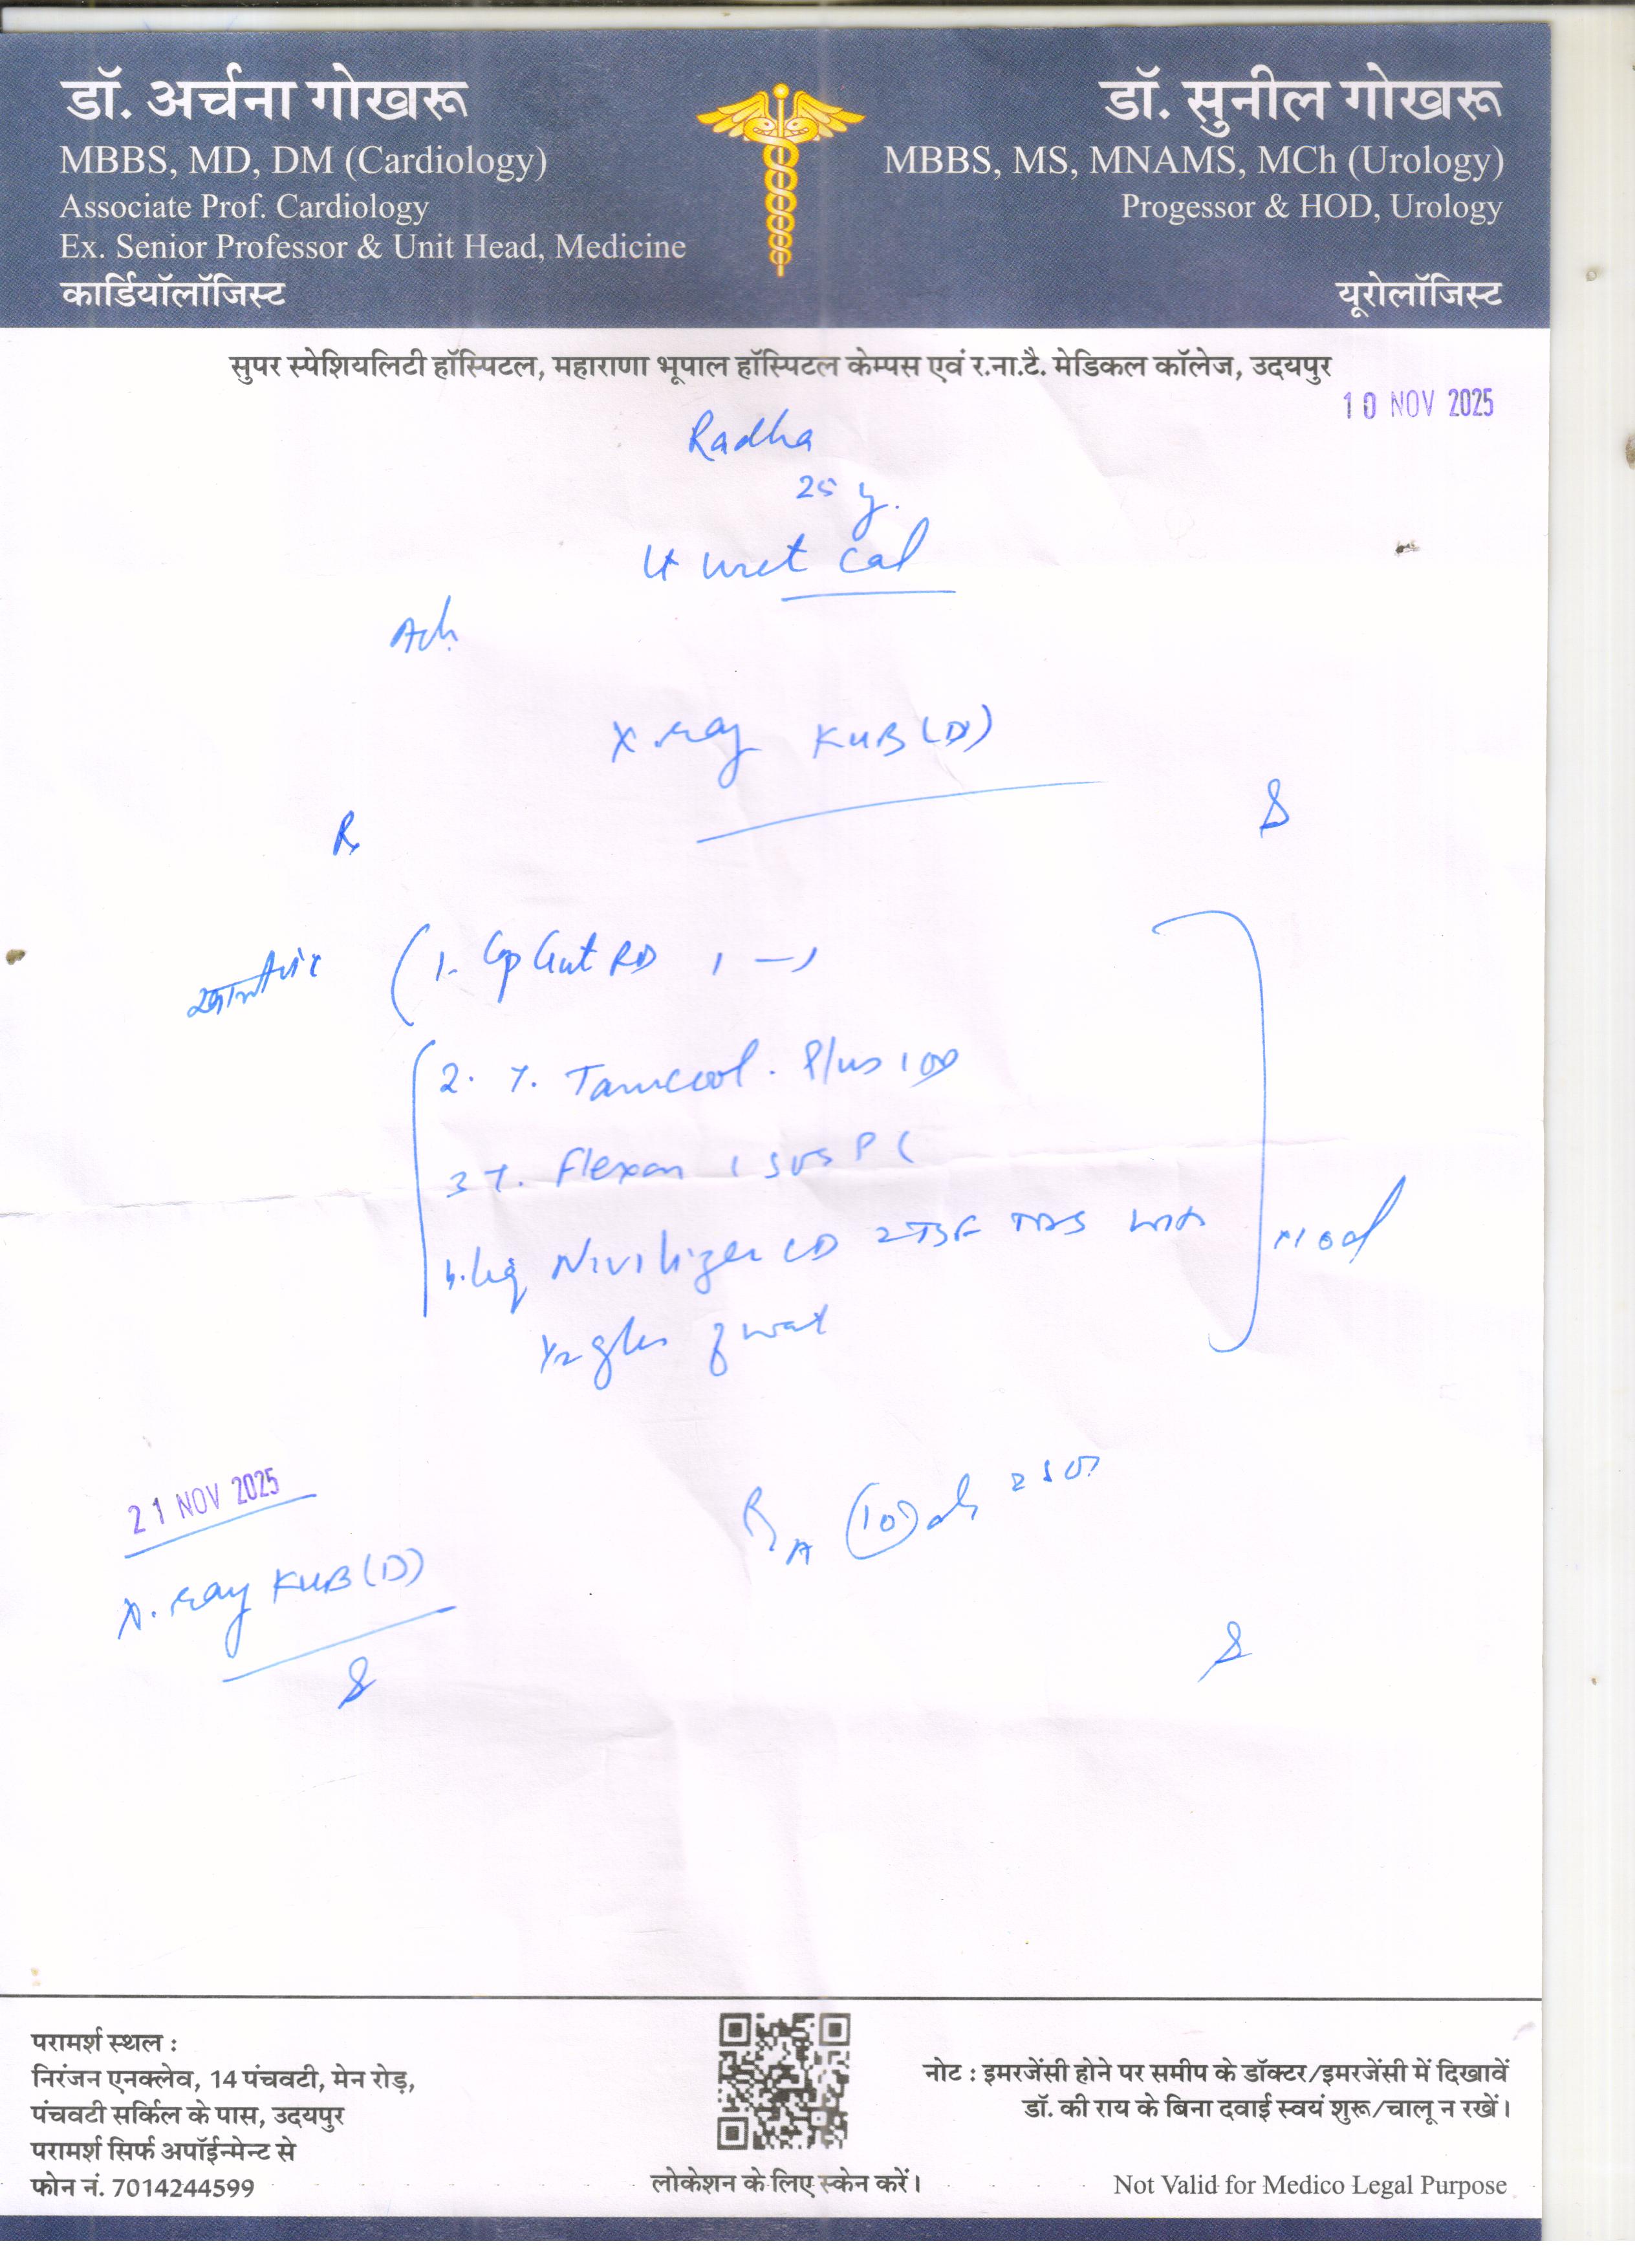 डॉ. अर्चना गोखरू
MBBS, MD, DM (Cardiology)
Associate Prof. Cardiology
Ex. Senior Professor & Unit Head, Medicine
कार्डियॉलॉजिस्ट
डॉ. सुनील गोखरू
MBBS, MS, MNAMS, MCh (Urology)
Progessor & HOD, Urology
यूरोलॉजिस्ट
सुपर स्पेशियलिटी हॉस्पिटल, महाराणा भूपाल हॉस्पिटल केम्पस एवं र.ना.टै. मेडिकल कॉलेज, उदयपुर
10 NOV 2025
Radha
25 y.
uret cal
X-ray KUB (D)
R
1. Cap RD 1-1
2. T. Plus 1 OD
3 T. Flexon 1 SOS
4. liq TDS
1/2 glass of wat
21 NOV 2025
X-ray KUB (D)
परामर्श स्थल :
निरंजन एनक्लेव, 14 पंचवटी, मेन रोड़,
पंचवटी सर्किल के पास, उदयपुर
परामर्श सिर्फ अपॉईन्मेन्ट से
फोन नं. 7014244599
लोकेशन के लिए स्केन करें।
नोट : इमरजेंसी होने पर समीप के डॉक्टर/इमरजेंसी में दिखावें
डॉ. की राय के बिना दवाई स्वयं शुरू/चालू न रखें।
Not Valid for Medico Legal Purpose